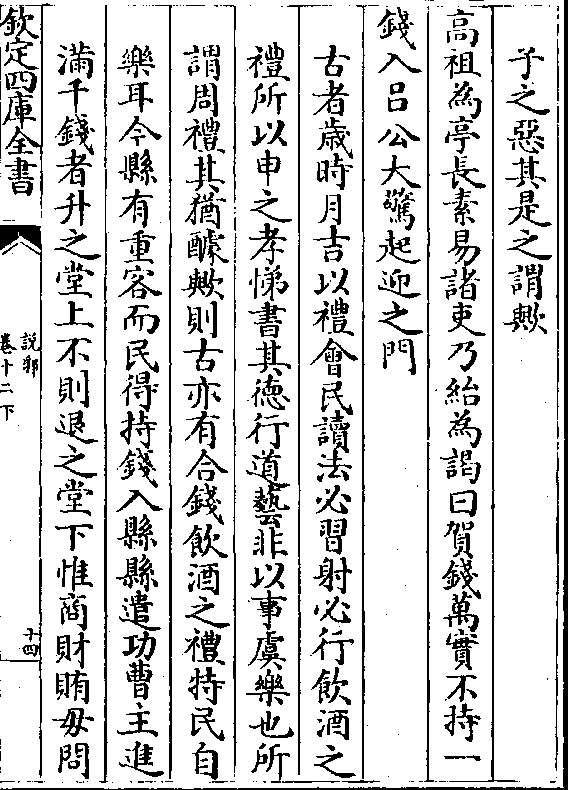 子之惡其是之謂歟
高祖為亭長素易諸吏乃紿為謁曰賀錢萬實不持一
錢入吕公大驚起迎之門
古者歲時月吉以禮會民讀法必習射必行飲酒之
禮所以申之孝悌書其德行道藝非以事虞樂也所
謂周禮其猶醵歟則古亦有合錢飲酒之禮特民自
樂耳今縣有重客而民得持錢入縣縣遣功曹主進
滿千錢者升之堂上不則退之堂下惟商財賄毋問
欽定四庫全書
說郛
卷十二下
十四